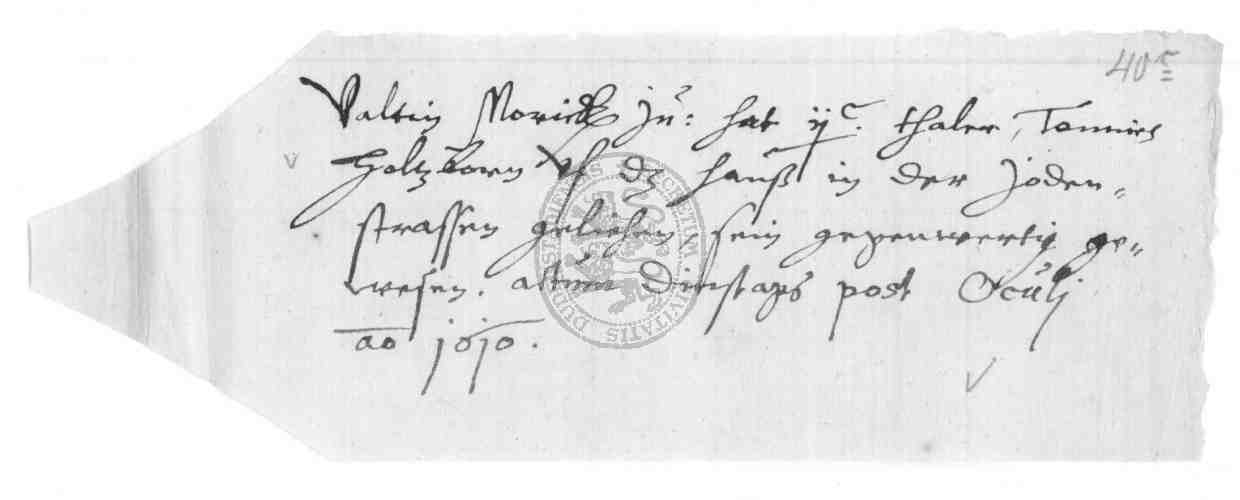 40r
Valtin Morick Ju: hat ijc. thaler, Tonnies
Holtzborn vf dz hauß in der Joden-
strassen geliehen, sein gegenwertig ge-
wesen. actum Dinstags post Oculj
ao 1610.
SIGILLVM CIVITATIS DUDERSTADIENSIS